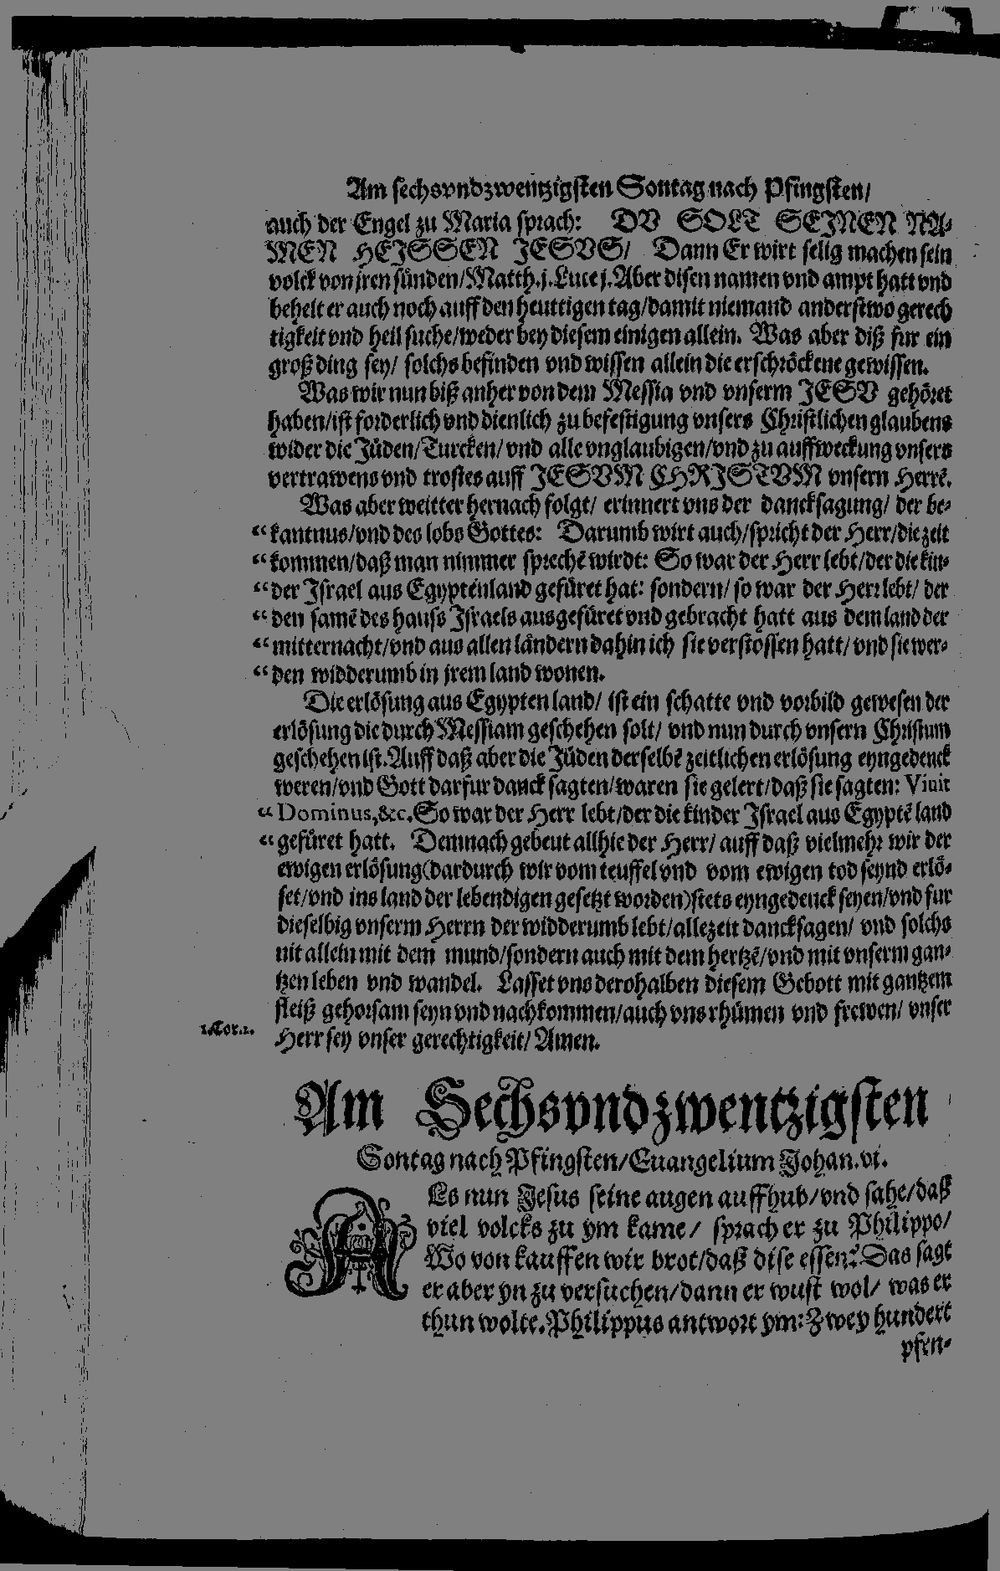 Am sechsvndzwentzigsten Sontag nach Pfingsten/
auch der Engel zu Maria sprach: DV SOLT SEINEN NA-
MEN HEISSEN JESVS/ Dann Er wirt selig machen sein
volck von jren sünden/Matth.j.Luce j. Aber disen namen vnd ampt hatt vnd
behelt er auch noch auff den heuttigen tag/damit niemand anderstwo gerech
tigkeit vnd heil suche/weder bey diesem einigen allein. Was aber diß fur ein
groß ding sey/ solchs befinden vnd wissen allein die erschröckene gewissen.
Was wir nun biß anher von dem Messia vnd vnserm JESV gehöret
haben/ist forderlich vnd dienlich zu befestigung vnsers Christlichen glaubens
wider die Jüden/Turcken/vnd alle vnglaubigen/vnd zu auffweckung vnsers
vertrawens vnd trostes auff JESVM CHRISTVM vnsern Herrē.
Was aber weitter hernach folgt/ erinnert vns der dancksagung/ der be-
“ kantnus/vnd des lobs Gottes: Darumb wirt auch/spricht der Herr/die zeit
“ kommen/daß man nimmer sprechē wirdt: So war der Herr lebt/der die kin-
“ der Israel aus Egyptenland gefüret hat: sondern/ so war der Herr lebt/ der
“ den samē des hauss Israels ausgefüret vnd gebracht hatt aus dem land der
“ mitternacht/vnd aus allen ländern dahin ich sie verstossen hatt/ vnd sie wer-
“ den widderumb in jrem land wonen.
Die erlösung aus Egypten land/ ist ein schatte vnd vorbild gewesen der
erlösung die durch Messiam geschehen solt/ vnd nun durch vnsern Christum
geschehen ist. Auff daß aber die Jüden derselbē zeitlichen erlösung eyngedenck
weren/vnd Gott darfur danck sagten/waren sie gelert/daß sie sagten: Viuit
“ Dominus,&c. So war der Herr lebt/der die kinder Israel aus Egyptē land
“ gefüret hatt. Demnach gebeut allhie der Herr/ auff daß vielmehr wir der
ewigen erlösung(dardurch wir vom teuffel vnd vom ewigen tod seynd erlö-
set/vnd ins land der lebendigen gesetzt worden)stets eyngedenck seyen/vnd fur
dieselbig vnserm Herrn der widderumb lebt/allezeit dancksagen/ vnd solchs
nit allein mit dem mund/sondern auch mit dem hertzē/vnd mit vnserm gan-
tzen leben vnd wandel. Lasset vns derohalben diesem Gebott mit gantzem
fleiß gehorsam seyn vnd nachkommen/auch vns rhümen vnd frewen/ vnser
1.Cor.1.
Herr sey vnser gerechtigkeit/ Amen.
Am Sechsvndzwentzigsten
Sontag nach Pfingsten/Euangelium Johan.vi.
ALs nun Jesus seine augen auffhub/vnd sahe/daß
viel volcks zu ym kame/ sprach er zu Philippo/
Wo von kauffen wir brot/daß dise essen? Das sagt
er aber yn zu versuchen/dann er wust wol/ was er
thun wolte. Philippus antwort ym: Zwey hundert
pfen-